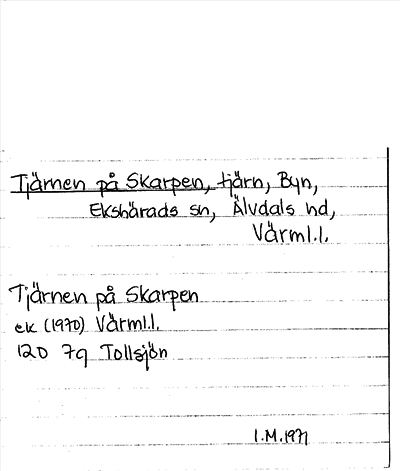 Tjärnen på Skarpen, tjärn, Byn,
Ekshärads sn, Älvdals hd,
Värml.l.
Tjärnen på Skarpen
ek (1970) Värml.l.
12D 7g Tollsjön
I.M.1971